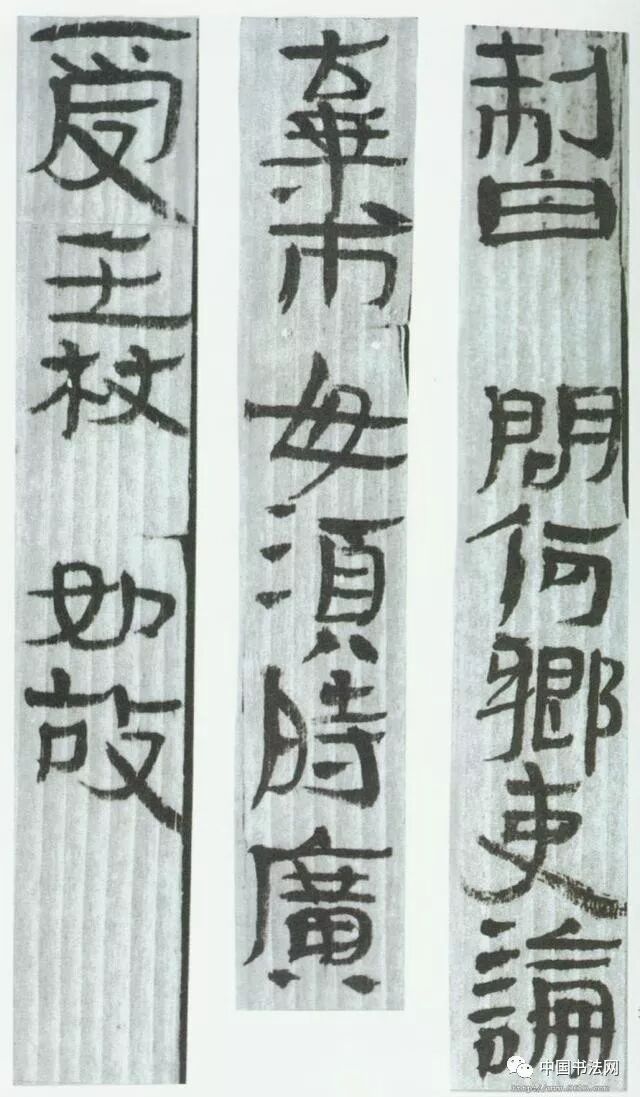 制曰 問何鄉吏論
棄市 毋須時廣
受王杖 如故
中国书法网